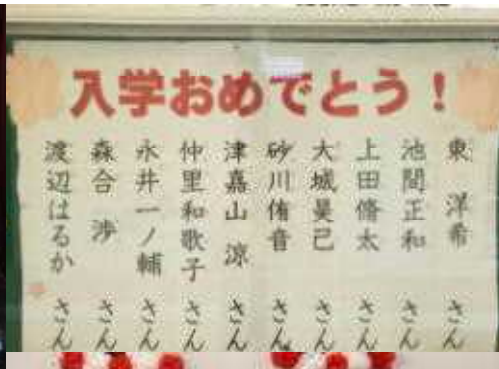 入学おめでとう!
東 洋希 さん
池間正和 さん
上田脩太 さん
大城昊己 さん
砂川侑音 さん
津嘉山 涼 さん
仲里和歌子 さん
永井一ノ輔 さん
森合 渉 さん
渡辺はるか さん